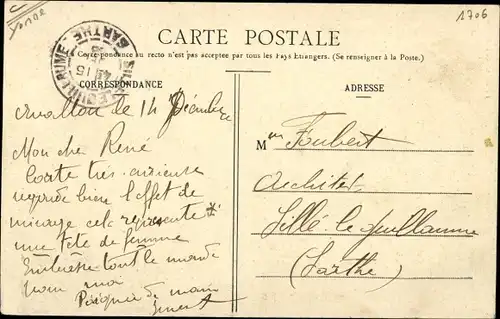 Yonne
1706
CARTE POSTALE
La Correspondance au recto n'est pas acceptée par tous les Pays Étrangers. (Se renseigner à la Poste.)
CORRESPONDANCE
ADRESSE
SILLÉ-LE-GUILLAUME
SARTHE
15
Avallon le 14 Décembre
Mon cher René
Carte très curieuse
regarde bien l'effet de
mirage cela représente
une tête de femme
tout le monde
pour moi
Poignée de main
M Foubert
Architecte
Sillé-le-Guillaume
(Sarthe)